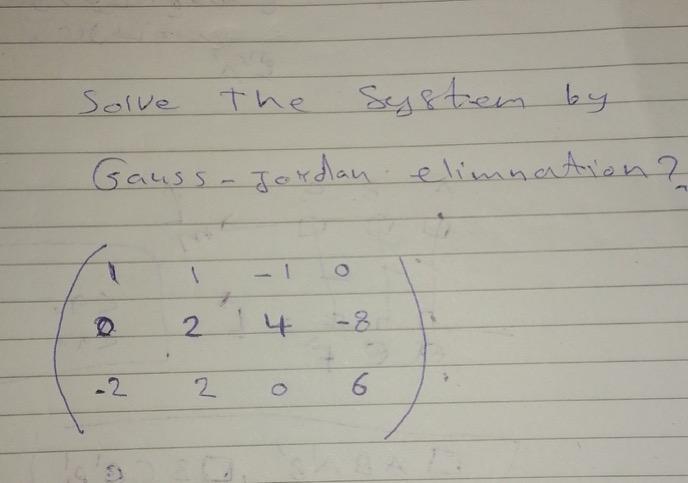 Solve the System by
Gauss-Jordan elimnation?
1 1 -1 0
0 2 4 -8
-2 2 0 6